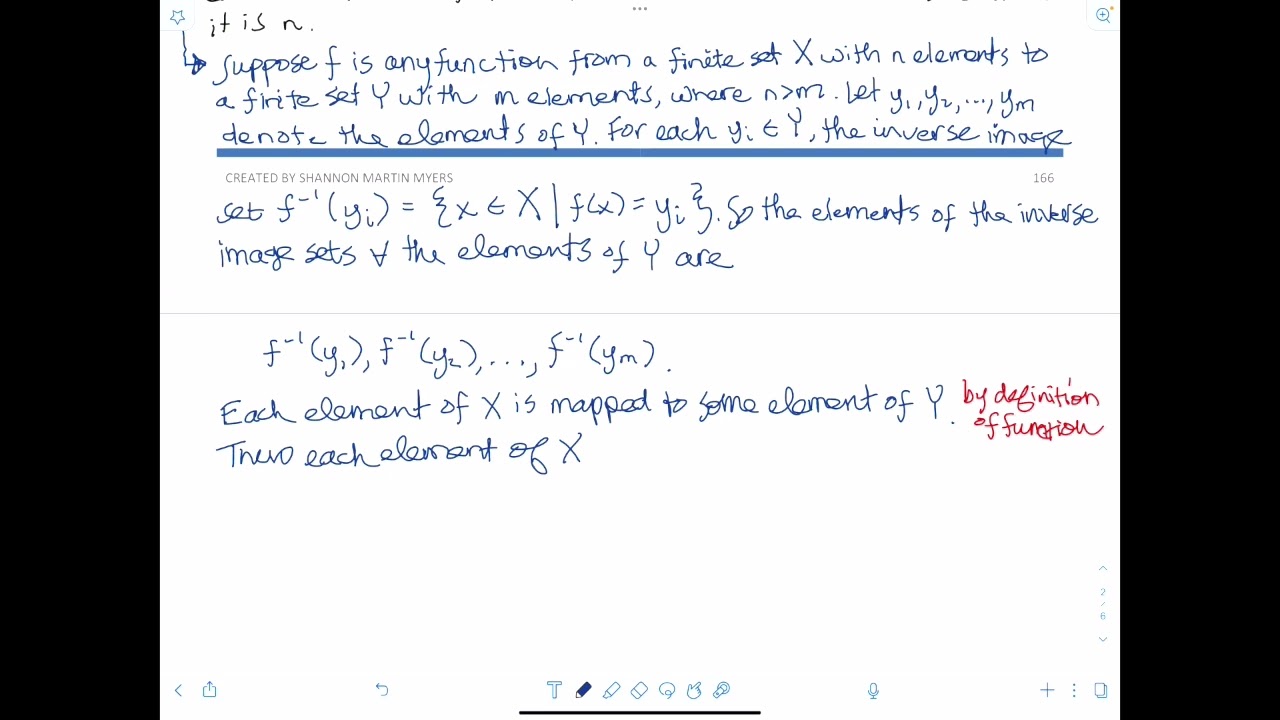 it is n.
Suppose f is any function from a finite set X with n elements to
a finite set Y with m elements, where n>m. Let y₁, y₂, ..., yₘ
denote the elements of Y. For each yᵢ ∈ Y, the inverse image
CREATED BY SHANNON MARTIN MYERS 166
set f⁻¹(yᵢ) = {x ∈ X | f(x) = yᵢ}. So the elements of the inverse
image sets ∀ the elements of Y are
f⁻¹(y₁), f⁻¹(y₂), ..., f⁻¹(yₘ).
Each element of X is mapped to some element of Y. by definition
of function
Thus each element of X
2
/
6